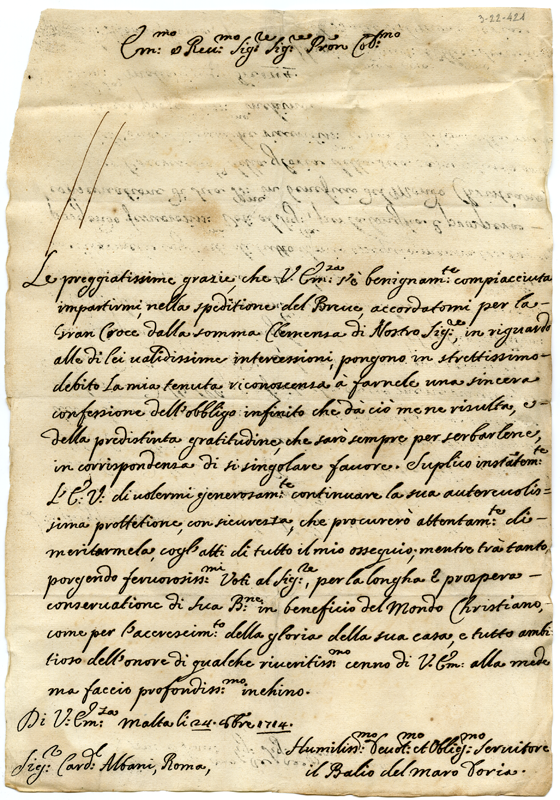 3-22-421
Em:mo e Reu:mo Sig:re Sig:re Pron Col:mo
Le preggiatissime grazie, che V. Em:za s'è benignam:te compiacciuta
impartirmi nella speditione del Breue, accordatomi per la
Gran Croce dalla somma Clemensa di Nostro Sig:re, in riguardo
alle di lei ualidissime intercessioni, pongono in strettissimo
debito la mia tenuta riconoscensa à farnele una sincera
confessione dell'obbligo infinito che da ciò me ne risulta, e
della predistinta gratitudine, che sarò sempre per serbarlene,
in corrispondensa di sì singolare fauore. Suplico instätem:te
L'E.V. di uolermi generosam:te continuare la sua autereuolis=
sima prottetione, con sicuressa, che procurerò attentam:te di
meritarmela, cogl'atti di tutto il mio ossequio; mentre trà tanto
porgendo feruorosiss:mi Voti al Sig:re, per la longha e prospera
conseruatione di Sua B:ne in beneficio del Mondo Christiano,
come per l'accrescim:to della gloria della sua casa, e tutto ambi
tioso dell'onore di qualche riueritiss:mo cenno di V. Em: alla mede
ma faccio profondiss:mo inchino.
Di V. Em:za Malta li 24. 9bre 1714.
Humiliss:mo Deuot:mo et Obblig:mo Seruitore
Sig:r Card:le Albani, Roma,
il Balio del maro Doria.